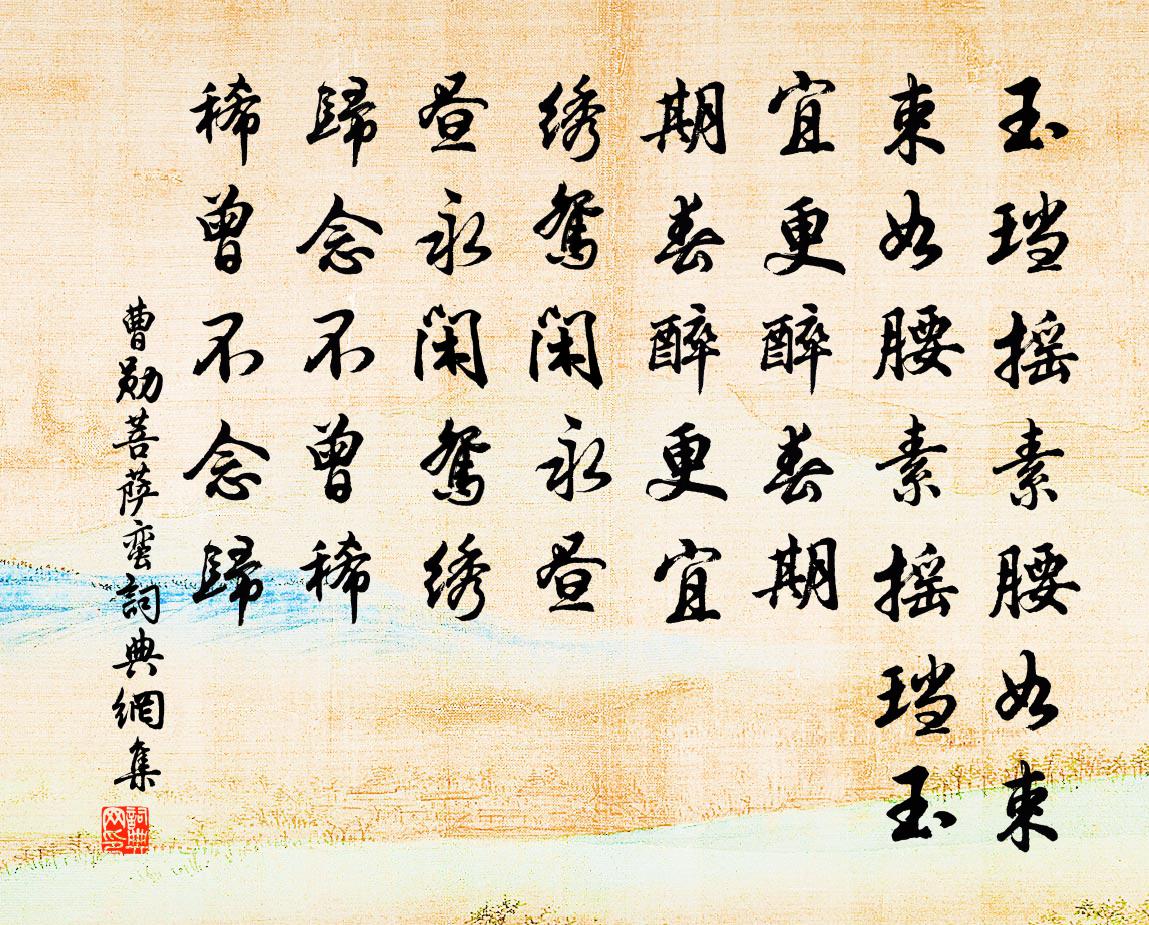 玉珰摇素腰如束
束如腰素摇珰玉
宜更醉春期
期春醉更宜
绣鸳闲永昼
昼永闲鸳绣
歸念不曾稀
稀曾不念歸
曹勋菩萨蛮詞典網集
詞典網印